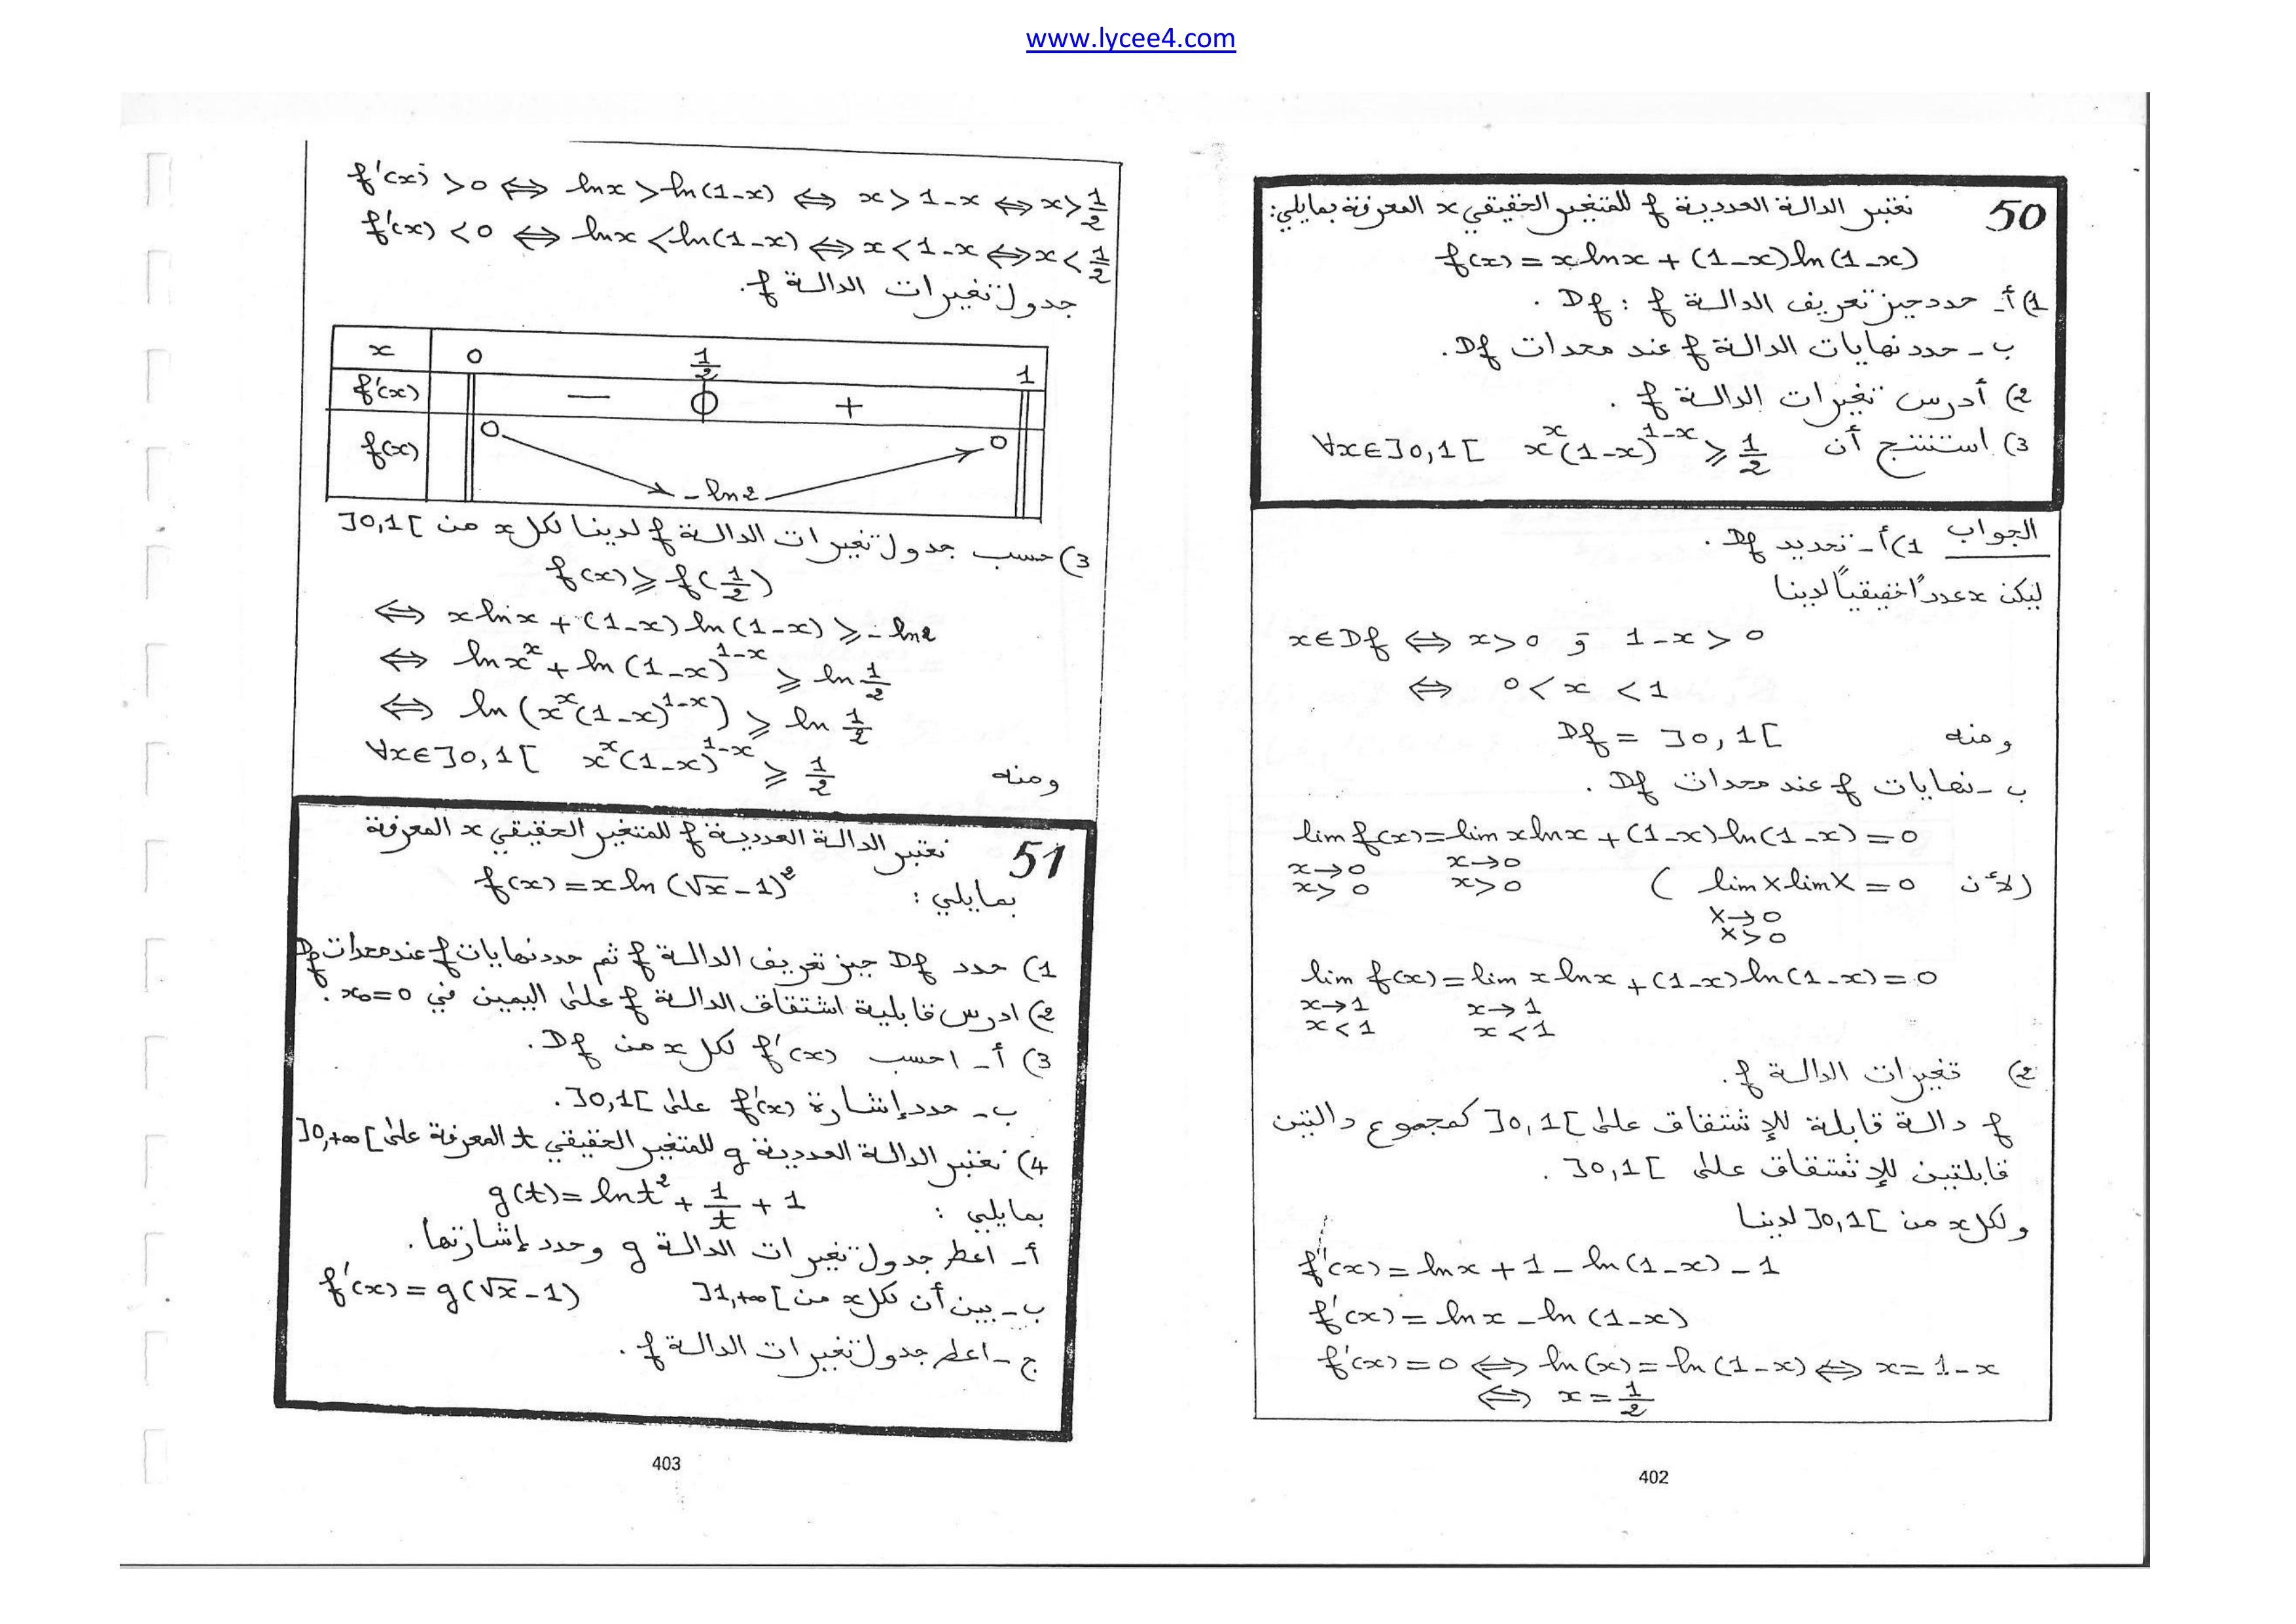 www.lycee4.com
50 نعتبر الدالة العددية f للمتغير الحقيقي x المعرفة بمايلي:
f(x) = x ln x + (1-x) ln(1-x)
1) أ- حدد حيز تعريف الدالة f : Df .
ب - حدد نهايات الدالة f عند محدات Df.
2) أدرس تغيرات الدالة f .
3) استنتج أن ∀x∈]0,1[ x^x (1-x)^{1-x} ⩾ 1/2
الجواب 1) أ - تحديد Df .
ليكن x عدداً حقيقياً لدينا
x∈Df ⇔ x>0 و 1-x>0
⇔ 0<x<1
ومنه Df = ]0,1[
ب - نهايات f عند محدات Df .
lim f(x) = lim x ln x + (1-x) ln(1-x) = 0
x→0 x→0
x>0 x>0
(لأن lim X lim X = 0 )
X→0
X>0
lim f(x) = lim x ln x + (1-x) ln(1-x) = 0
x→1 x→1
x<1 x<1
2) تغيرات الدالة f.
f دالة قابلة للإشتقاق على ]0,1[ كمجموع دالتين
قابلتين للإشتقاق على ]0,1[ .
ولكل x من ]0,1[ لدينا
f'(x) = ln x + 1 - ln(1-x) - 1
f'(x) = ln x - ln(1-x)
f'(x) = 0 ⇔ ln(x) = ln(1-x) ⇔ x = 1-x
⇔ x = 1/2
402
f'(x) > 0 ⇔ ln x > ln(1-x) ⇔ x > 1-x ⇔ x > 1/2
f'(x) < 0 ⇔ ln x < ln(1-x) ⇔ x < 1-x ⇔ x < 1/2
جدول تغيرات الدالة f.
x 0 1/2 1
f'(x) - 0 +
f(x) 0 -ln2 0
3) حسب جدول تغيرات الدالة f لدينا لكل x من ]0,1[
f(x) ⩾ f(1/2)
⇔ x ln x + (1-x) ln(1-x) ⩾ -ln2
⇔ ln x^x + ln(1-x)^{1-x} ⩾ ln 1/2
⇔ ln(x^x (1-x)^{1-x}) ⩾ ln 1/2
ومنه ∀x∈]0,1[ x^x (1-x)^{1-x} ⩾ 1/2
51 نعتبر الدالة العددية f للمتغير الحقيقي x المعرفة
بمايلي : f(x) = x ln(√x - 1)²
1) حدد Df حيز تعريف الدالة f ثم حدد نهايات f عند محدات Df
2) ادرس قابلية اشتقاق الدالة f على اليمين في x₀=0 .
3) أ - احسب f'(x) لكل x من Df.
ب - حدد إشارة f'(x) على ]0,1[.
4) نعتبر الدالة العددية g للمتغير الحقيقي t المعرفة على ]0,+∞[
بمايلي : g(t) = ln t² + 1/t + 1
أ - اعط جدول تغيرات الدالة g وحدد إشارتها.
ب - بين أن لكل x من ]1,+∞[ f'(x) = g(√x - 1)
ج - اعط جدول تغيرات الدالة f .
403